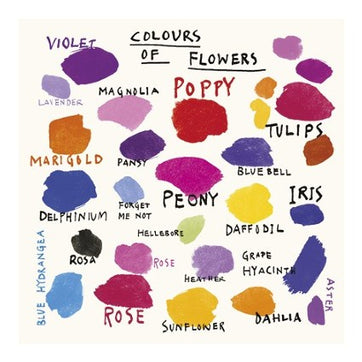 COLOURS
OF FLOWERS
VIOLET
LAVENDER
MAGNOLIA
POPPY
TULIPS
MARIGOLD
PANSY
BLUEBELL
DELPHINIUM
FORGET
ME NOT
PEONY
IRIS
HELLEBORE
DAFFODIL
BLUE HYDRANGEA
ROSA
ROSE
HEATHER
GRAPE
HYACINTH
ASTER
ROSE
SUNFLOWER
DAHLIA